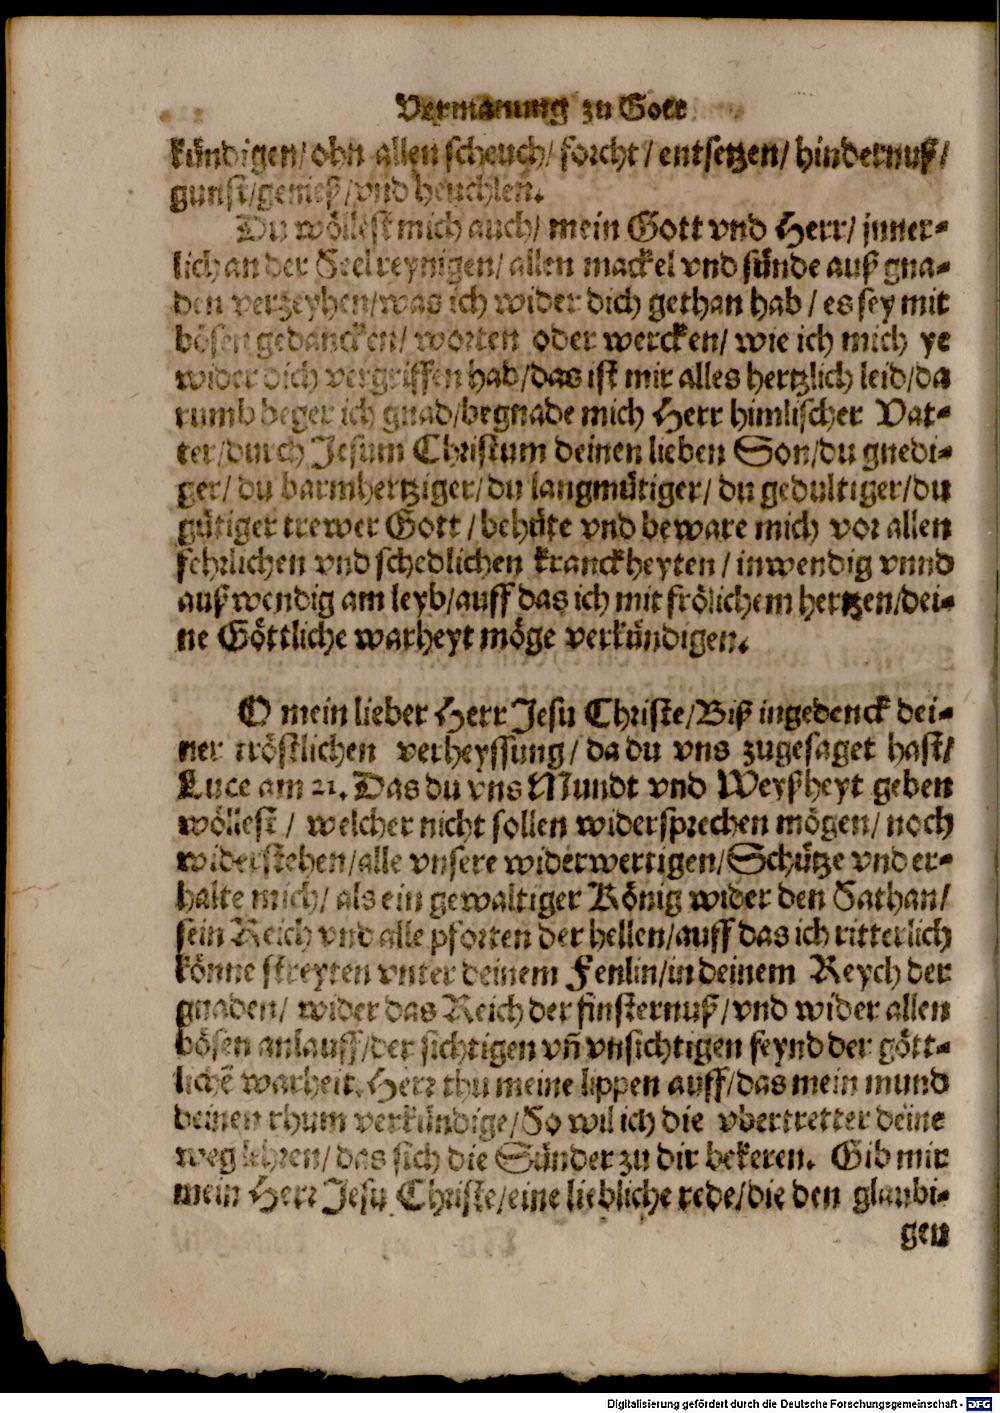 Vermanung zu Gott
kündigen/ ohn allen scheuch/ forcht/ entsetzen/ hindernuß/
gunst/ genieß/ vnd heuchlen.
Du wöllest mich auch/ mein Gott vnd Herr/ jnner-
lich an der Seel reynigen/ allen mackel vnd sünde auß gna-
den verzeyhen/ was ich wider dich gethan hab/ es sey mit
bösen gedancken/ worten oder wercken/ wie ich mich ye
wider dich vergriffen hab/ das ist mir alles hertzlich leid/ da
rumb beger ich gnad/ begnade mich Herr himlischer Vat-
ter/ durch Jesum Christum deinen lieben Son/ du gnedi-
ger/ du barmhertziger/ du langmütiger/ du gedultiger/ du
gütiger trewer Gott/ behüte vnd beware mich vor allen
fehrlichen vnd schedlichen kranckheyten/ inwendig vnnd
außwendig am leyb/ auff das ich mit frölichem hertzen/ dei-
ne Göttliche warheyt möge verkündigen.
O mein lieber Herr Jesu Christe/ Biß ingedenck dei-
ner tröstlichen verheyssung/ da du vns zugesaget hast/
Luce am 21. Das du vns Mundt vnd Weyßheyt geben
wöllest/ welcher nicht sollen widersprechen mögen/ noch
widerstehen/ alle vnsere widerwertigen/ Schütze vnd er-
halte mich/ als ein gewaltiger König wider den Sathan/
sein Reich vnd alle pforten der hellen/ auff das ich ritterlich
könne streyten vnter deinem Fenlin/ in deinem Reych der
gnaden/ wider das Reich der finsternuß/ vnd wider allen
bösen anlauff/ der sichtigen vñ vnsichtigen feynd der gött-
lichẽ warheit. Herr thu meine lippen auff/ das mein mund
deinen rhum verkündige/ So wil ich die vbertretter deine
weg lehren/ das sich die Sünder zu dir bekeren. Gib mir
mein Herr Jesu Christe/ eine liebliche rede/ die den glaubi-
gen
Digitalisierung gefördert durch die Deutsche Forschungsgemeinschaft - DFG